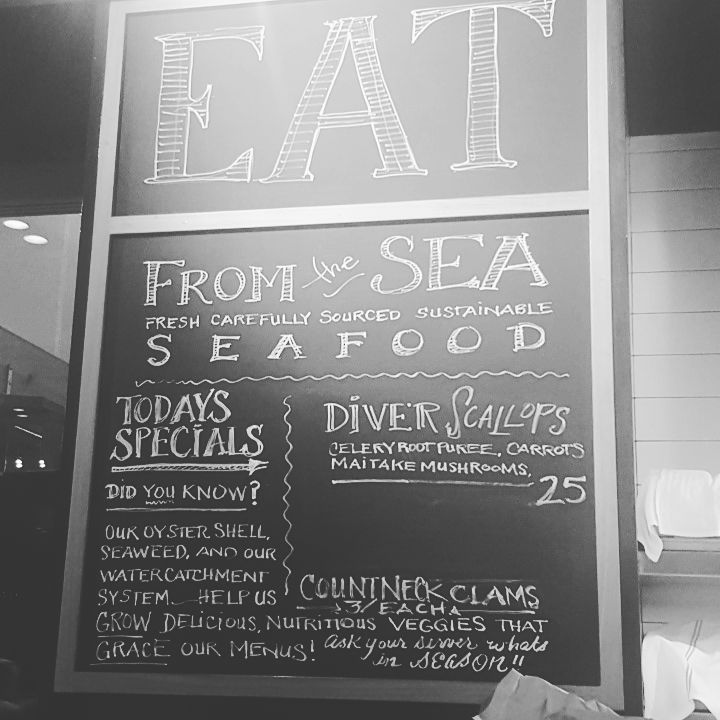 EAT
FROM the SEA
FRESH CAREFULLY SOURCED SUSTAINABLE
SEAFOOD
TODAYS
SPECIALS
DID YOU KNOW?
OUR OYSTER SHELL,
SEAWEED, AND OUR
WATERCATCHMENT
SYSTEM HELP US
GROW DELICIOUS, NUTRITIOUS VEGGIES THAT
GRACE OUR MENUS!
DIVER SCALLOPS
CELERY ROOT PUREE, CARROTS
MAITAKE MUSHROOMS,
25
COUNTNECK CLAMS
3/EACH
ask your server whats
in SEASON!!